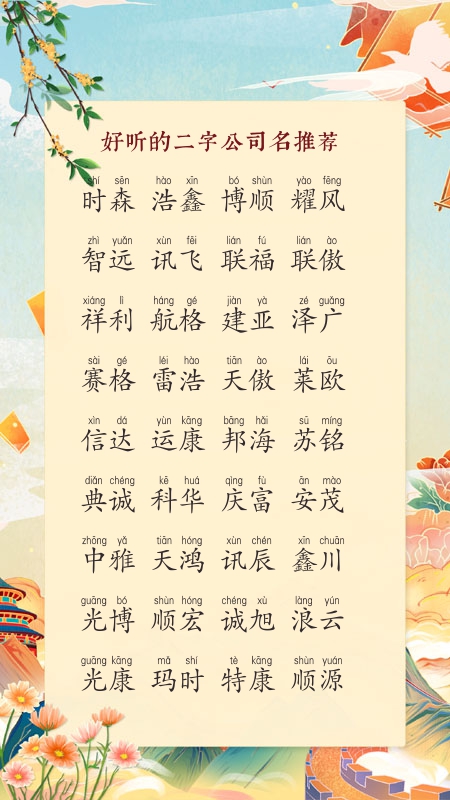 好听的二字公司名推荐
shí sēn hào xīn bó shùn yào fēng
时森 浩鑫 博顺 耀风
zhì yuǎn xùn fēi lián fú lián ào
智远 讯飞 联福 联傲
xiáng lì háng gé jiàn yà zé guǎng
祥利 航格 建亚 泽广
sài gé léi hào tiān ào lái ōu
赛格 雷浩 天傲 莱欧
xìn dá yùn kāng bāng hǎi sū míng
信达 运康 邦海 苏铭
diǎn chéng kē huá qìng fù ān mào
典诚 科华 庆富 安茂
zhōng yǎ tiān hóng xùn chén xīn chuān
中雅 天鸿 讯辰 鑫川
guāng bó shùn hóng chéng xù làng yún
光博 顺宏 诚旭 浪云
guāng kāng mǎ shí tè kāng shùn yuán
光康 玛时 特康 顺源